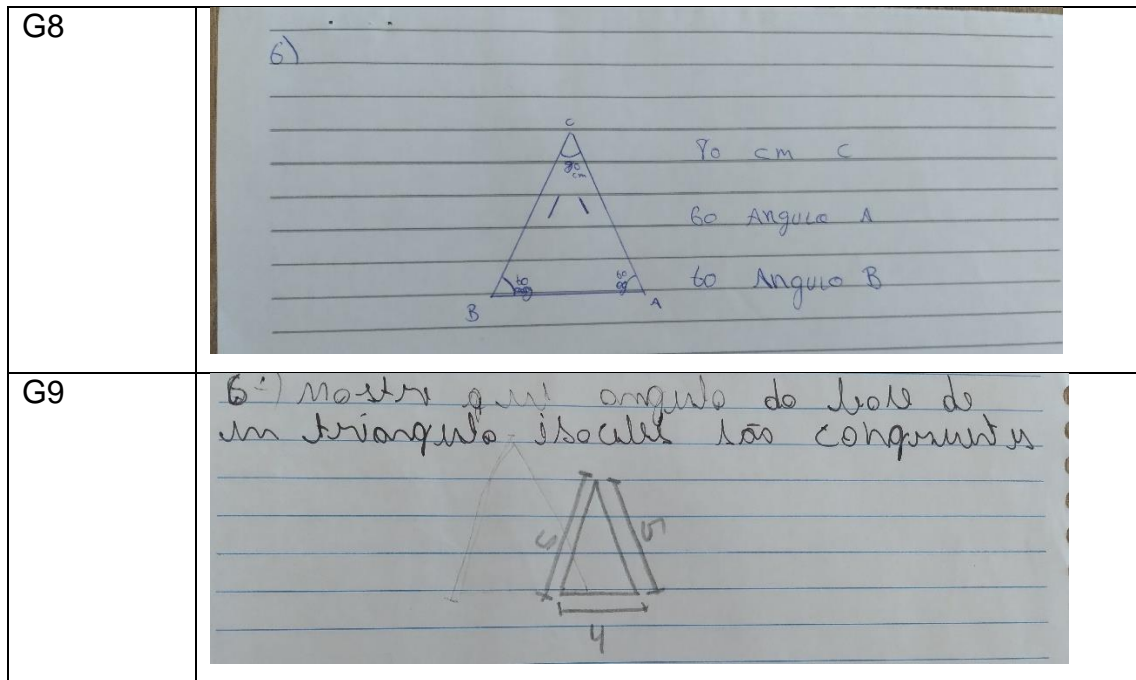 G8
6)
C
cm
80 cm C
60 Angulo A
60
60
60 Angulo B
B
A
G9
6-) Mostre que angulo da base de
um triangulo isoceles são congruentes
5
5
4